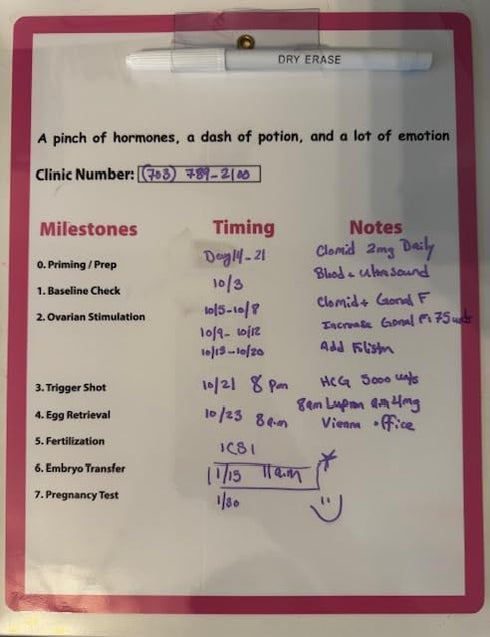 DRY ERASE
A pinch of hormones, a dash of potion, and a lot of emotion
Clinic Number: (703) 789-2100
Milestones Timing Notes
0. Priming / Prep Day 14-21 Clomid 2mg Daily
1. Baseline Check 10/3 Blood + ultrasound
2. Ovarian Stimulation 10/5-10/8 Clomid + Gonal F
10/9-10/12 Increase Gonal F: 75
10/13-10/20 Add
3. Trigger Shot 10/21 8 pm HCG 5000
8am Lupron 4mg
4. Egg Retrieval 10/23 8am Vienna office
5. Fertilization ICSI
6. Embryo Transfer 11am
7. Pregnancy Test